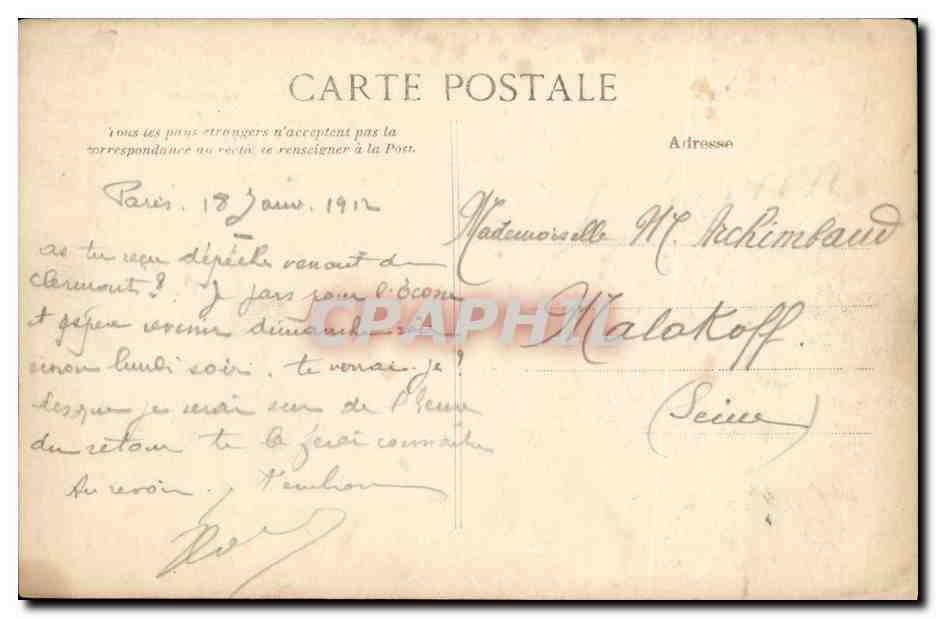 CARTE POSTALE
Tous les pays étrangers n'acceptent pas la
correspondance au recto, se renseigner à la Post.
Adresse
Paris. 18 Janv. 1912
as tu reçu dépêche venant de
Clermont? Je pars pour l'
et espère revenir dimanche soir
sinon lundi soir. te verrai-je?
Lorsque je serai sur de l'heure
du retour te le ferai connaître
Au revoir. t'embrasse
Mademoiselle M. Archimbaud
Malakoff.
(Seine)
CPAPHIL